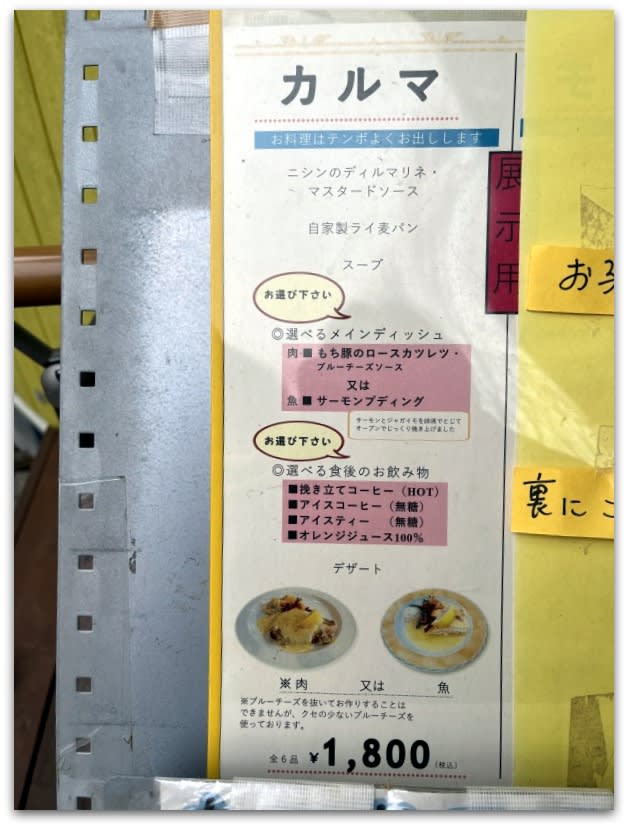 カルマ
お料理はテンポよくお出しします
ニシンのディルマリネ・
マスタードソース
自家製ライ麦パン
スープ
お選び下さい
◎選べるメインディッシュ
肉■もち豚のロースカツレツ・
ブルーチーズソース
又は
魚■サーモンプディング
サーモンとジャガイモを卵液でとじて
オーブンでじっくり焼き上げました
お選び下さい
◎選べる食後のお飲み物
■挽き立てコーヒー(HOT)
■アイスコーヒー(無糖)
■アイスティー (無糖)
■オレンジジュース100%
デザート
※肉 又は 魚
※ブルーチーズを抜いてお作りすることは
できませんが、クセの少ないブルーチーズを
使っております。
全6品 ¥1,800(税込)
展示用
お
裏に